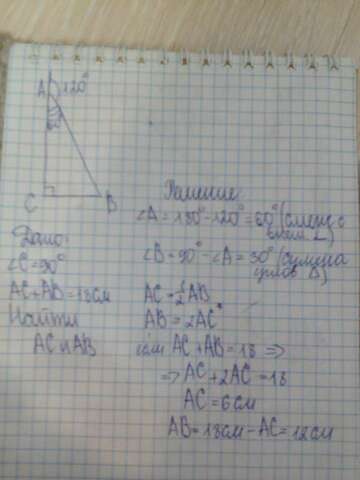 A 120°
60
C B
Решение:
∠A = 180° - 120° = 60° (смежн. с
внеш ∠)
Дано:
∠C = 90°
∠B = 90° - ∠A = 30° (сумма
углов Δ)
AC + AB = 18 см
AC = 1/2 AB
Найти
AB = 2AC
AC и AB
AC + AB = 18 =>
=> AC + 2AC = 18
AC = 6 см
AB = 18 см - AC = 12 см